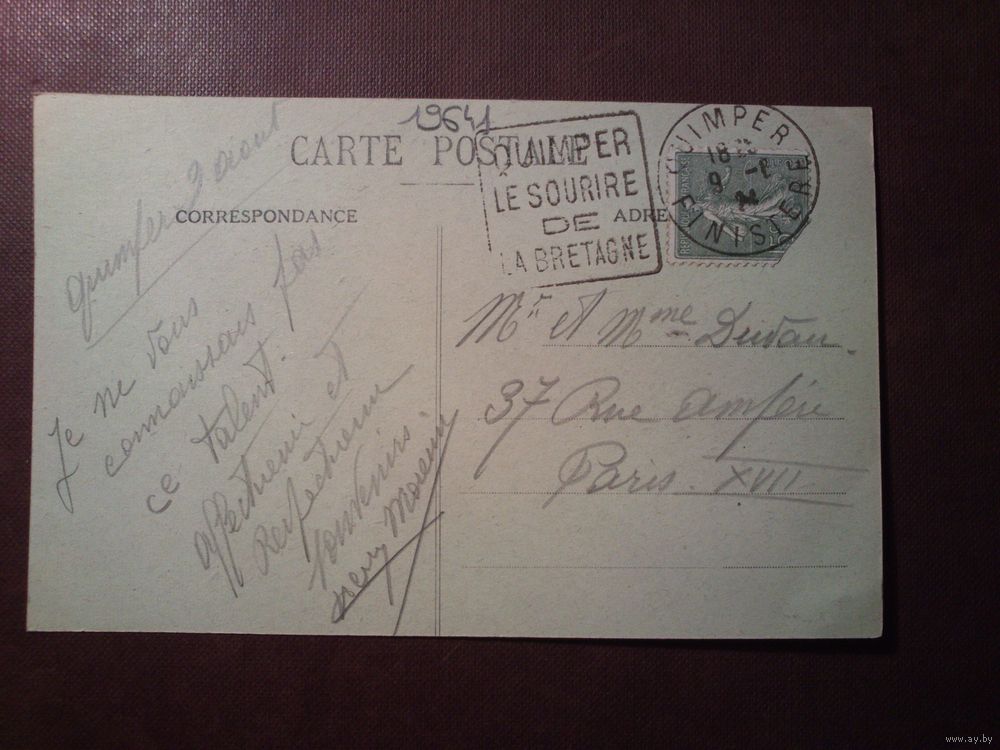 19641
CARTE POSTALE
QUIMPER
LE SOURIRE
DE
LA BRETAGNE
QUIMPER
18
9 -8
24
FINISTERE
CORRESPONDANCE
ADRE
Quimper 9 août
Je ne vous
connaissais pas
ce talent.
affectueux et
Respectueux
souvenirs
Mr et Mme Duvau.
37 Rue Ampère
Paris. XVII
www.ay.by